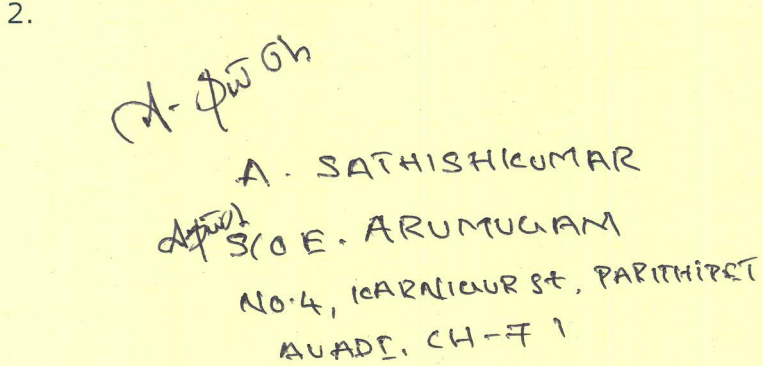 2.
A. SATHISHKUMAR
S/O E. ARUMUGAM
NO.4, KARNIGUR St, PARITHIPET
AVADI. CH-71